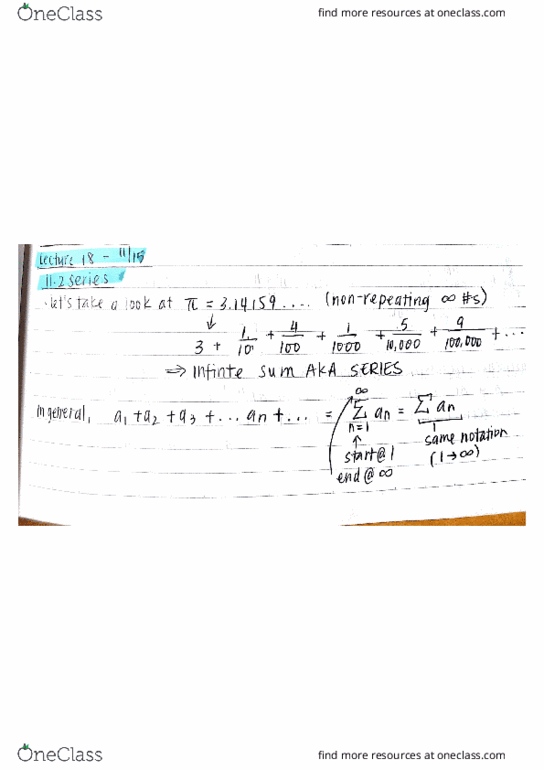 OneClass
find more resources at oneclass.com
Lecture 18 - 11/15
11.2 series
· let's take a look at π = 3.14159.... (non-repeating ∞ #s)
↓
3 + 1/10 + 4/100 + 1/1000 + 5/10,000 + 9/100,000 + ...
⇒ Infinte sum AKA SERIES
In general, a₁ + a₂ + a₃ + ... an + ... = ∞ Σ n=1 an = Σ an
↑ same notation
start@1 (1→∞)
end@∞
OneClass
find more resources at oneclass.com